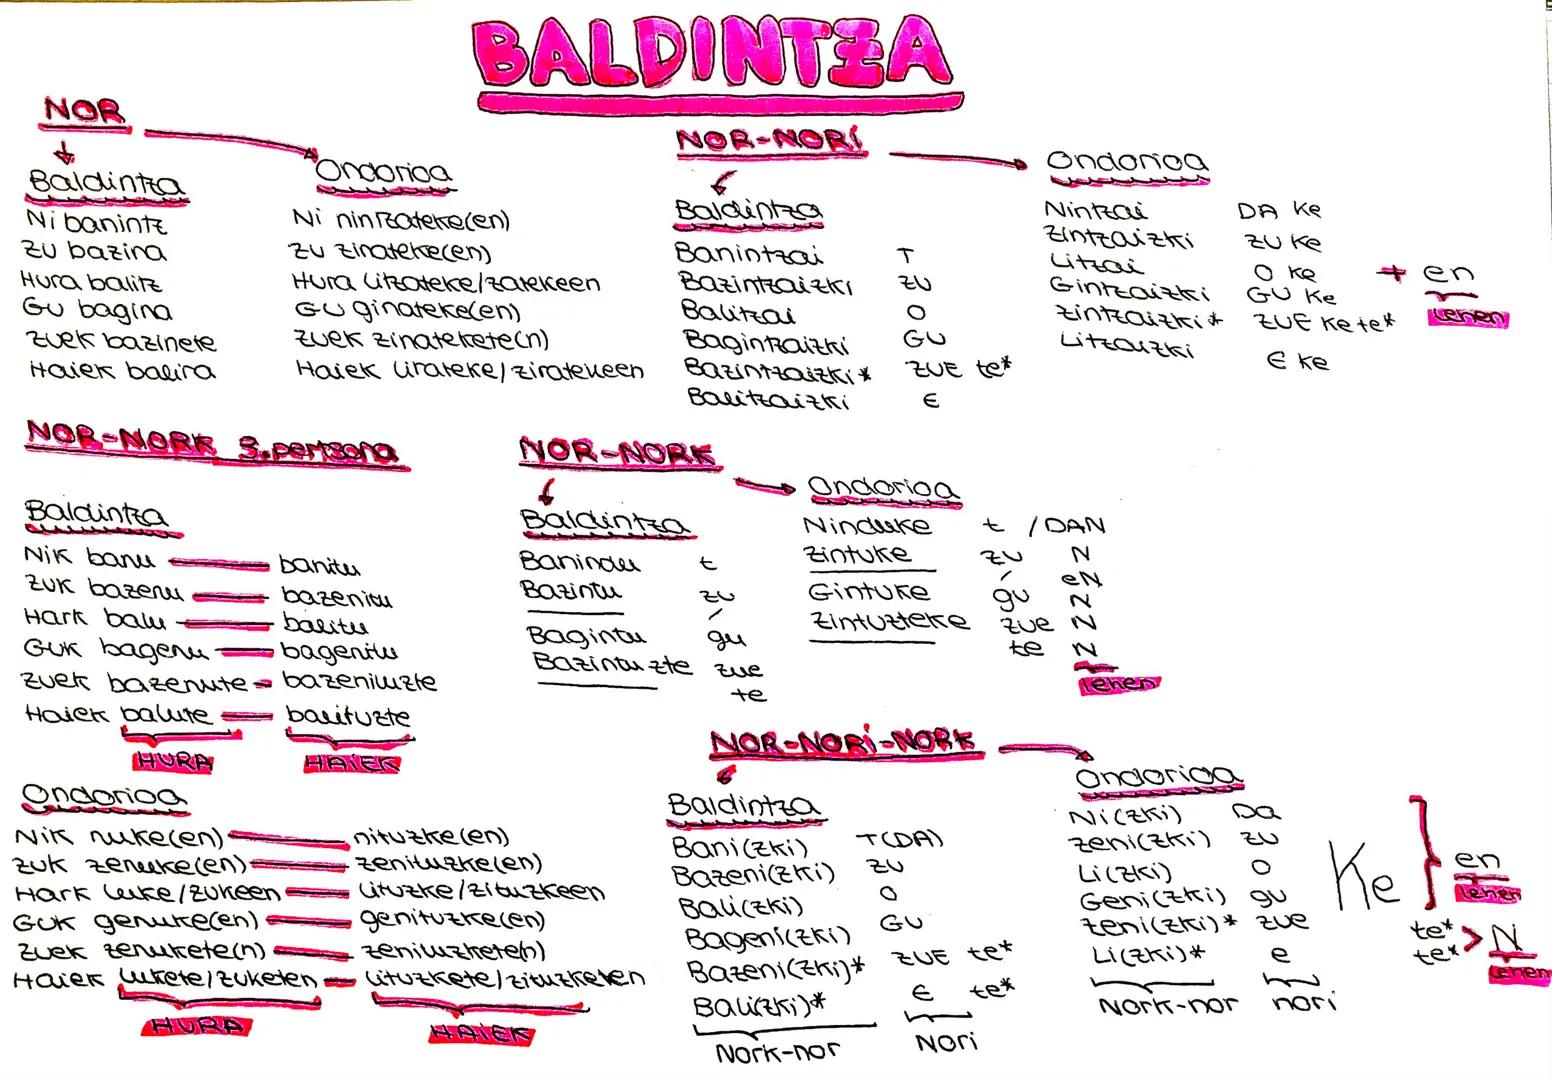 BALDINTZA
NOR
Baldintza
Ni banintz
Zu bazina
Hura balitz
Gu bagina
Zuek bazinete
Haiek balira
Ondorioa
Ni nintzateke(en)
Zu zinateke(en)
Hura litzateke/zatekeen
Gu ginateke(en)
Zuek zinatekete(n)
Haiek lirateke/ziratekeen
NOR-NORI
Baldintza
Banintzai T
Bazintzaizki ZU
Balitzai O
Bagintzaizki GU
Bazintzaizki* ZUE te*
Balitzaizki E
Ondorioa
Nintzai DA Ke
Zintzaizki ZU Ke
Litzai O Ke
Gintzaizki GU Ke
Zintzaizki* ZUE Ke te*
Litzaizki E Ke
+ en
lehen
NOR-NORK 3.pertsona
Baldintza
Nik banu banitu
Zuk bazenu bazenitu
Hark balu balitu
Guk bagenu bagenitu
Zuek bazenute bazenituzte
Haiek balute balituzte
HURA HAIEK
Ondorioa
Nik nuke(en) nituzke(en)
Zuk zenuke(en) zenituzke(en)
Hark luke/zukeen lituzke/zituzkeen
Guk genuke(en) genituzke(en)
Zuek zenukete(n) zenituzkete(n)
Haiek lukete/zuketen lituzkete/zituzketen
HURA HAIEK
NOR-NORK
Baldintza
Banindu t
Bazintu zu
/
Bagintu gu
Bazintuzte zue
te
Ondorioa
Ninduke t /DAN
Zintuke zu N
/ eN
Gintuke gu N
Zintuzteke zue N
te N
lehen
NOR-NORI-NORK
Baldintza
Bani(zki) T(DA)
Bazeni(zki) ZU
Bali(zki) O
Bageni(zki) GU
Bazeni(zki)* ZUE te*
Bali(zki)* E te*
Nork-nor Nori
Ondorioa
Ni(zki) Da
Zeni(zki) zu
Li(zki) O
Geni(zki) gu
Zeni(zki)* zue
Li(zki)* e
Nork-nor nori
Ke
en
lehen
te*
te*
> N
lehen